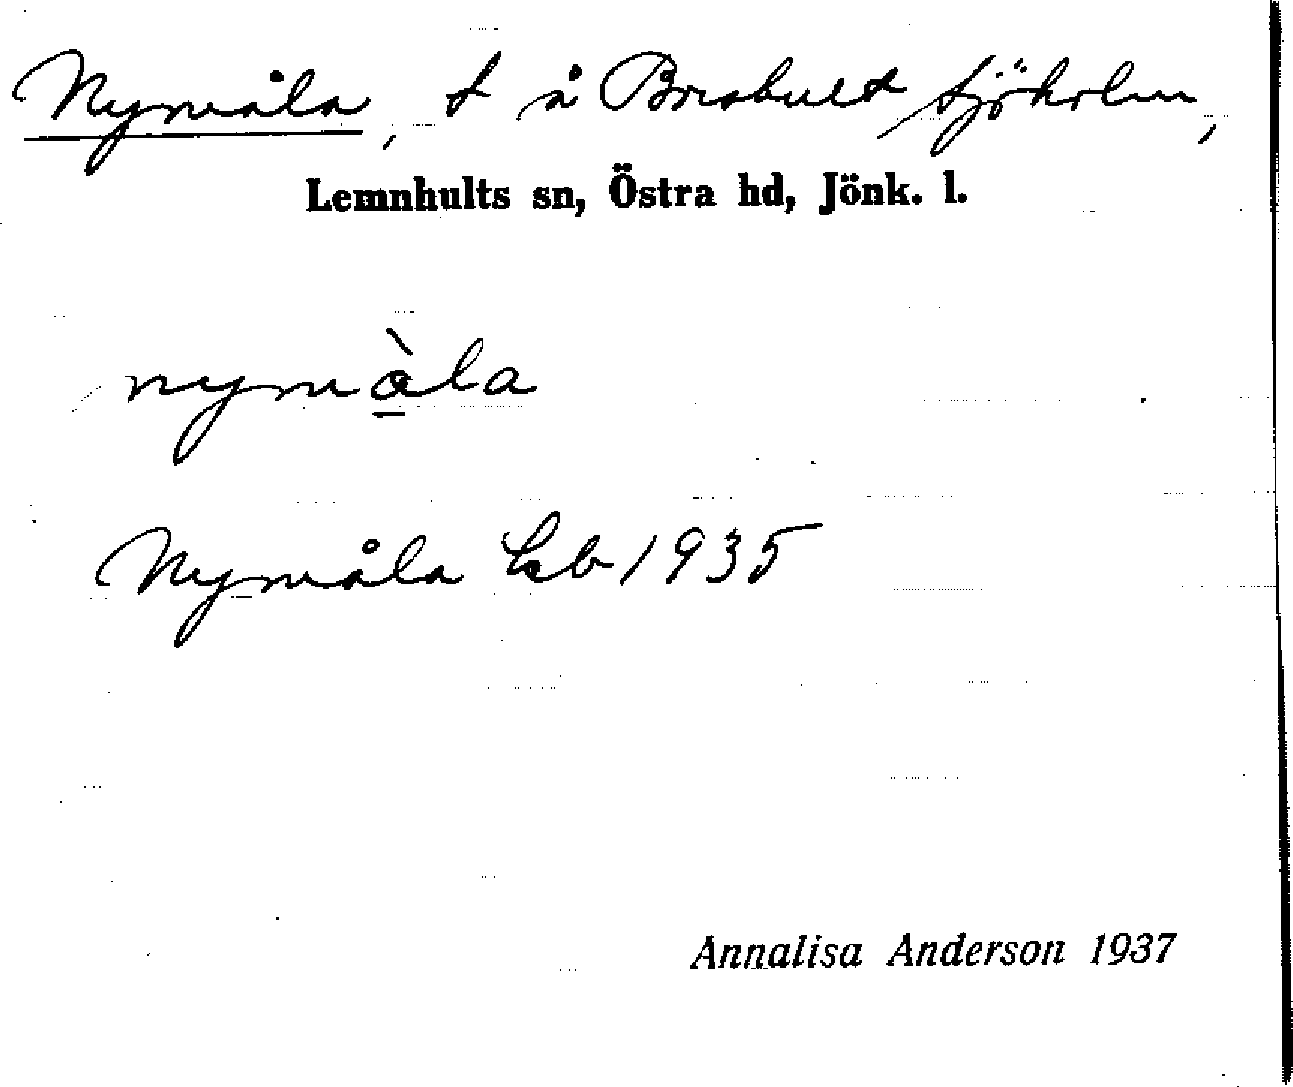 Nymåla, t å Brobult Sjöholm,
Lemnhults sn, Östra hd, Jönk. l.
nymàla
Nymåla Lsb 1935
Annalisa Anderson 1937